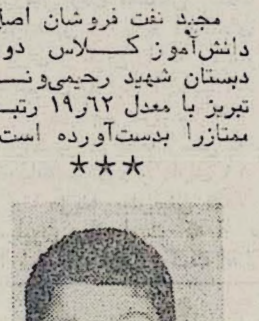 مجید نفت فروشان اصل
دانش‌آموز کلاس دو
دبستان شهید رحیمی‌ونـ
تبریز با معدل ۱۹٫۶۲ رتبـ
ممتازرا بدست‌آورده است
★★★